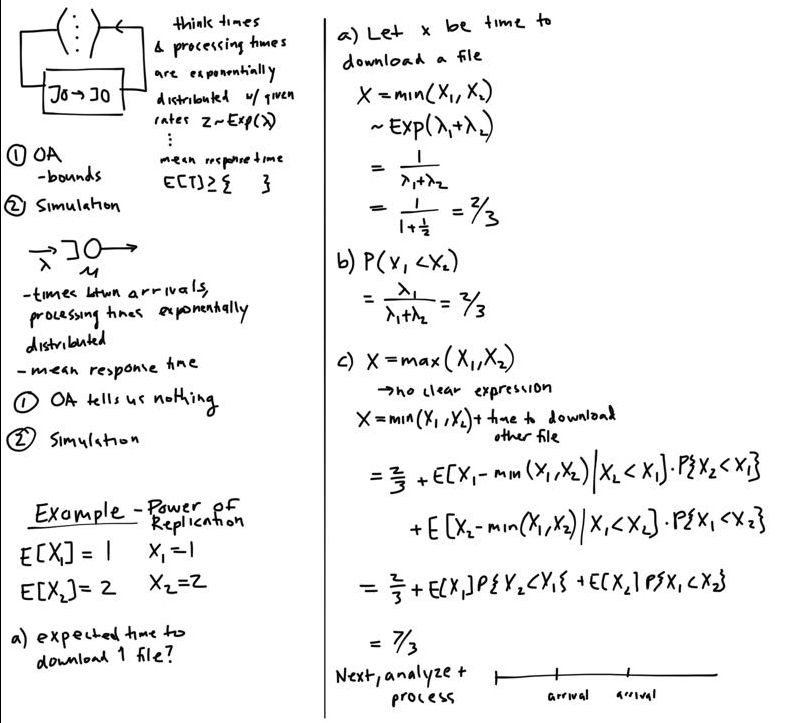 think times
& processing times
are exponentially
distributed w/ given
rates Z~Exp(λ)
⋮
mean response time
E[T]≥{ }
① OA
-bounds
② Simulation
λ
μ
-times btwn arrivals,
processing times exponentially
distributed
- mean response time
① OA tells us nothing
② Simulation
Example - Power of
Replication
E[X₁] = 1 X₁=1
E[X₂]= 2 X₂=2
a) expected time to
download 1 file?
a) Let x be time to
download a file
X = min(X₁, X₂)
~ Exp(λ₁+λ₂)
= 1/(λ₁+λ₂)
= 1/(1+½) = 2/3
b) P(X₁ < X₂)
= λ₁/(λ₁+λ₂) = 2/3
c) X = max(X₁,X₂)
→no clear expression
X = min(X₁,X₂)+ time to download
other file
= 2/3 + E[X₁- min(X₁,X₂)|X₂<X₁]·P{X₂<X₁}
+ E[X₂-min(X₁,X₂)|X₁<X₂]·P{X₁<X₂}
= 2/3 + E[X₁]P{X₂<X₁} + E[X₂]P{X₁<X₂}
= 7/3
Next, analyze +
process
arrival arrival